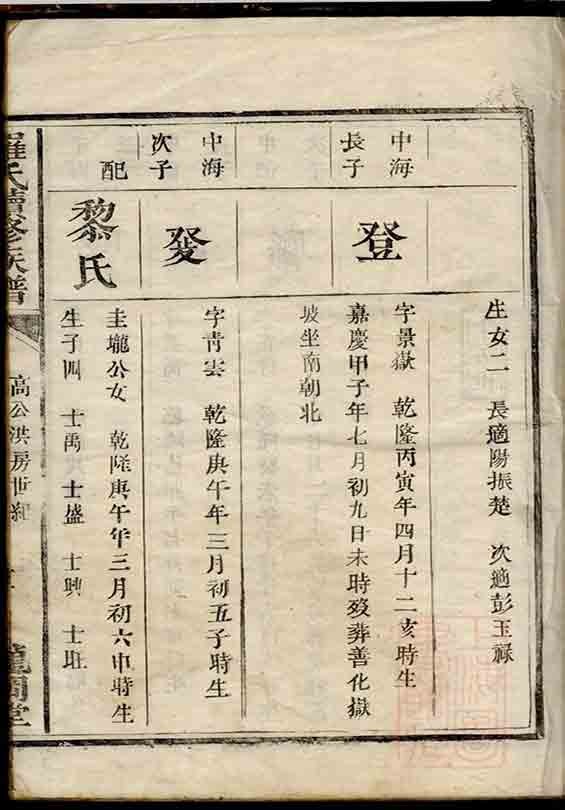 生女二 長適陽振楚 次適彭玉祿
中海
長子
登
字景嶽 乾隆丙寅年四月十二亥時生
嘉慶甲子年七月初九日未時歿葬善化嶽
坡坐南朝北
中海
次子
發
字青雲 乾隆庚午年三月初五子時生
配
黎氏
圭壠公女 乾隆庚午年三月初六申時生
生子四 士禹 士盛 士興 士
羅氏續修族譜
高公洪房世紀